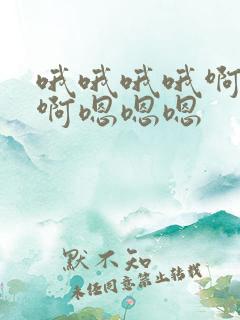 哦哦哦哦啊
啊嗯嗯嗯
默不知
未经同意禁止转载